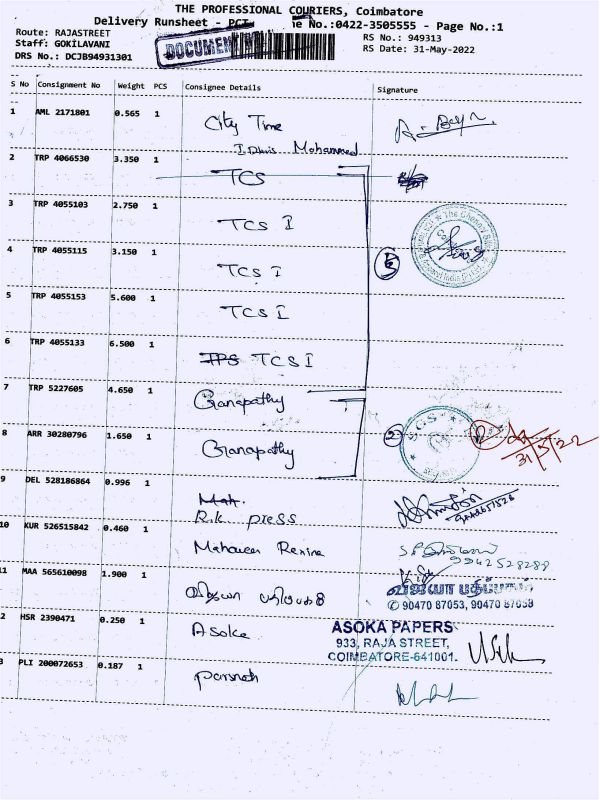 THE PROFESSIONAL COURIERS, Coimbatore
Delivery Runsheet - PCT ne No.:0422-3505555 - Page No.:1
Route: RAJASTREET RS No.: 949313
Staff: GOKILAVANI RS Date: 31-May-2022
DRS No.: DCJB94931301
DOCUMENT
S No Consignment No Weight PCS Consignee Details Signature
1 AML 2171801 0.565 1 City Time
Mohammed
2 TRP 4066530 3.350 1 TCS
3 TRP 4055103 2.750 1 TCS I
4 TRP 4055115 3.150 1 TCS I
5
5 TRP 4055153 5.600 1 TCS I
6 TRP 4055133 6.500 1 TCS I
7 TRP 5227605 4.650 1 Ganapathy
8 ARR 30280796 1.650 1 Ganapathy
2
31/5/22
9 DEL 528186864 0.996 1
R.K press
10 KUR 526515842 0.460 1 Mahaveer
9942528288
11 MAA 565610098 1.900 1
✆ 90470 87053, 90470 87058
2 HSR 2390471 0.250 1 Asoka
ASOKA PAPERS
933, RAJA STREET,
COIMBATORE-641001.
3 PLI 200072653 0.187 1